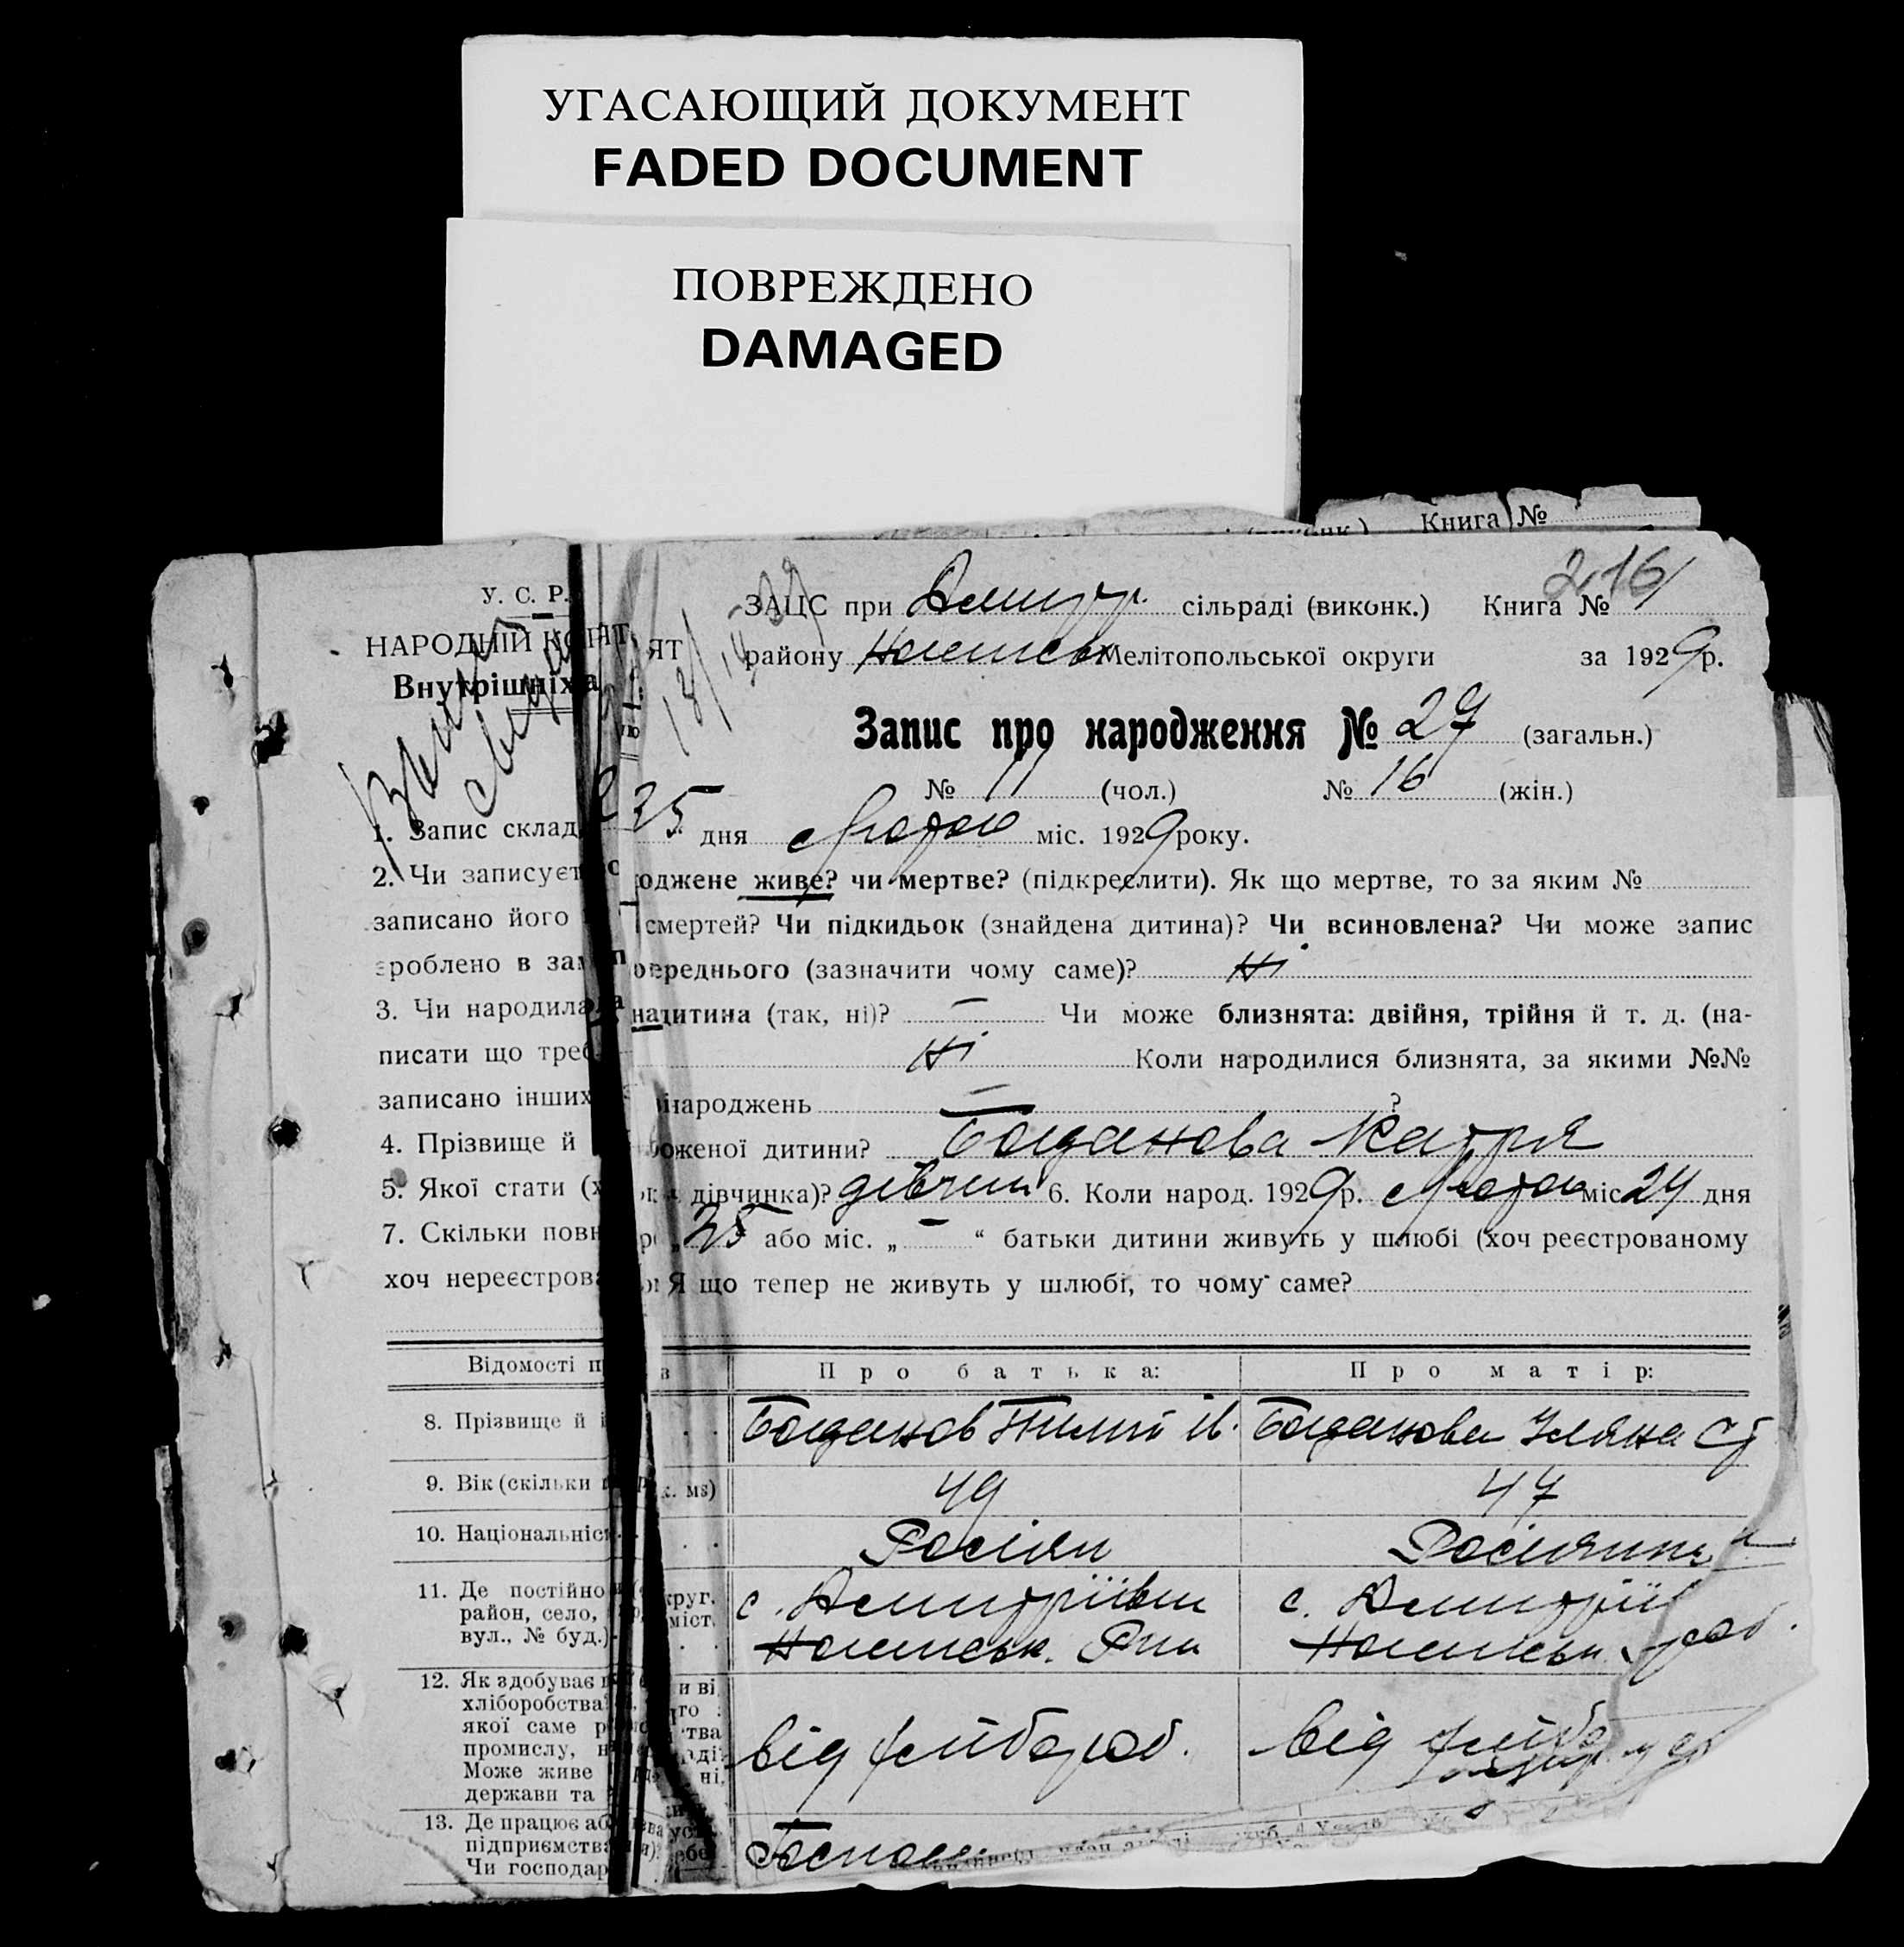 УГАСАЮЩИЙ ДОКУМЕНТ
FADED DOCUMENT
ПОВРЕЖДЕНО
DAMAGED
Книга №
216
У. С. Р.
НАРОДНІЙ КО
ЯТ
Внутрішніх
ЗАЦС при Дмитр. сільраді (виконк.) Книга № 1
району Ногайськ Мелітопольської округи за 1929 р.
Запис про народження № 27 (загальн.)
№ 11 (чол.) № 16 (жін.)
1. Запис склад 25 дня Лютого міс. 1929 року.
2. Чи записуєт оджене живе? чи мертве? (підкреслити). Як що мертве, то за яким №
записано його смертей? Чи підкидьок (знайдена дитина)? Чи всиновлена? Чи може запис
зроблено в зам попереднього (зазначити чому саме)? Ні
3. Чи народила на дитина (так, ні)? — Чи може близнята: двійня, трійня й т. д. (на-
писати що треб Ні Коли народилися близнята, за якими №№
записано інших народжень — ?
4. Прізвище й оженої дитини? Богданова Катря
5. Якої стати (х дівчинка)? дівчин 6. Коли народ. 1929 р. Лютого міс 24 дня
7. Скільки повн „25 або міс. „ — “ батьки дитини живуть у шлюбі (хоч реєстрованому
хоч нереєстрова Я що тепер не живуть у шлюбі, то чому саме?
Відомості п Про батька: Про матір:
8. Прізвище й і Богданов Пилип И. Богданова Уляна
9. Вік (скільки к. мs) 49 47
10. Національніс Росіян Росіянин
11. Де постійно круг. с. Дмитрівки с. Дмитрі
район, село, міст. Ногайськ. Р-ну Ногайськ
вул., № буд.)
12. Як здобуває и ві
хліборобства го
якої саме р тва від хлібороб. від хлібо
промислу, н
Може живе ні,
держави та
13. Де працює аб
підприємства
Чи господар Господ